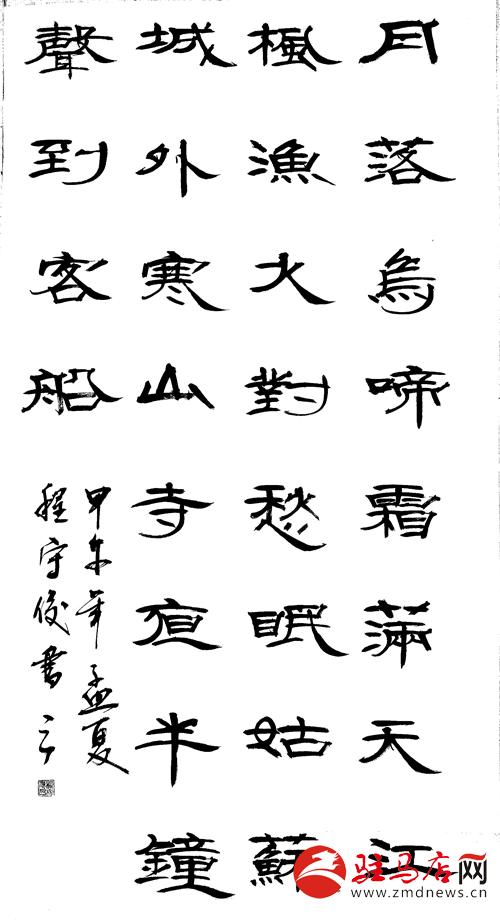 月落烏啼霜滿天江
楓漁火對愁眠姑蘇
城外寒山寺夜半鐘
聲到客船
甲午年孟夏
程守俊書
驻马店网
www.zmdnews.cn